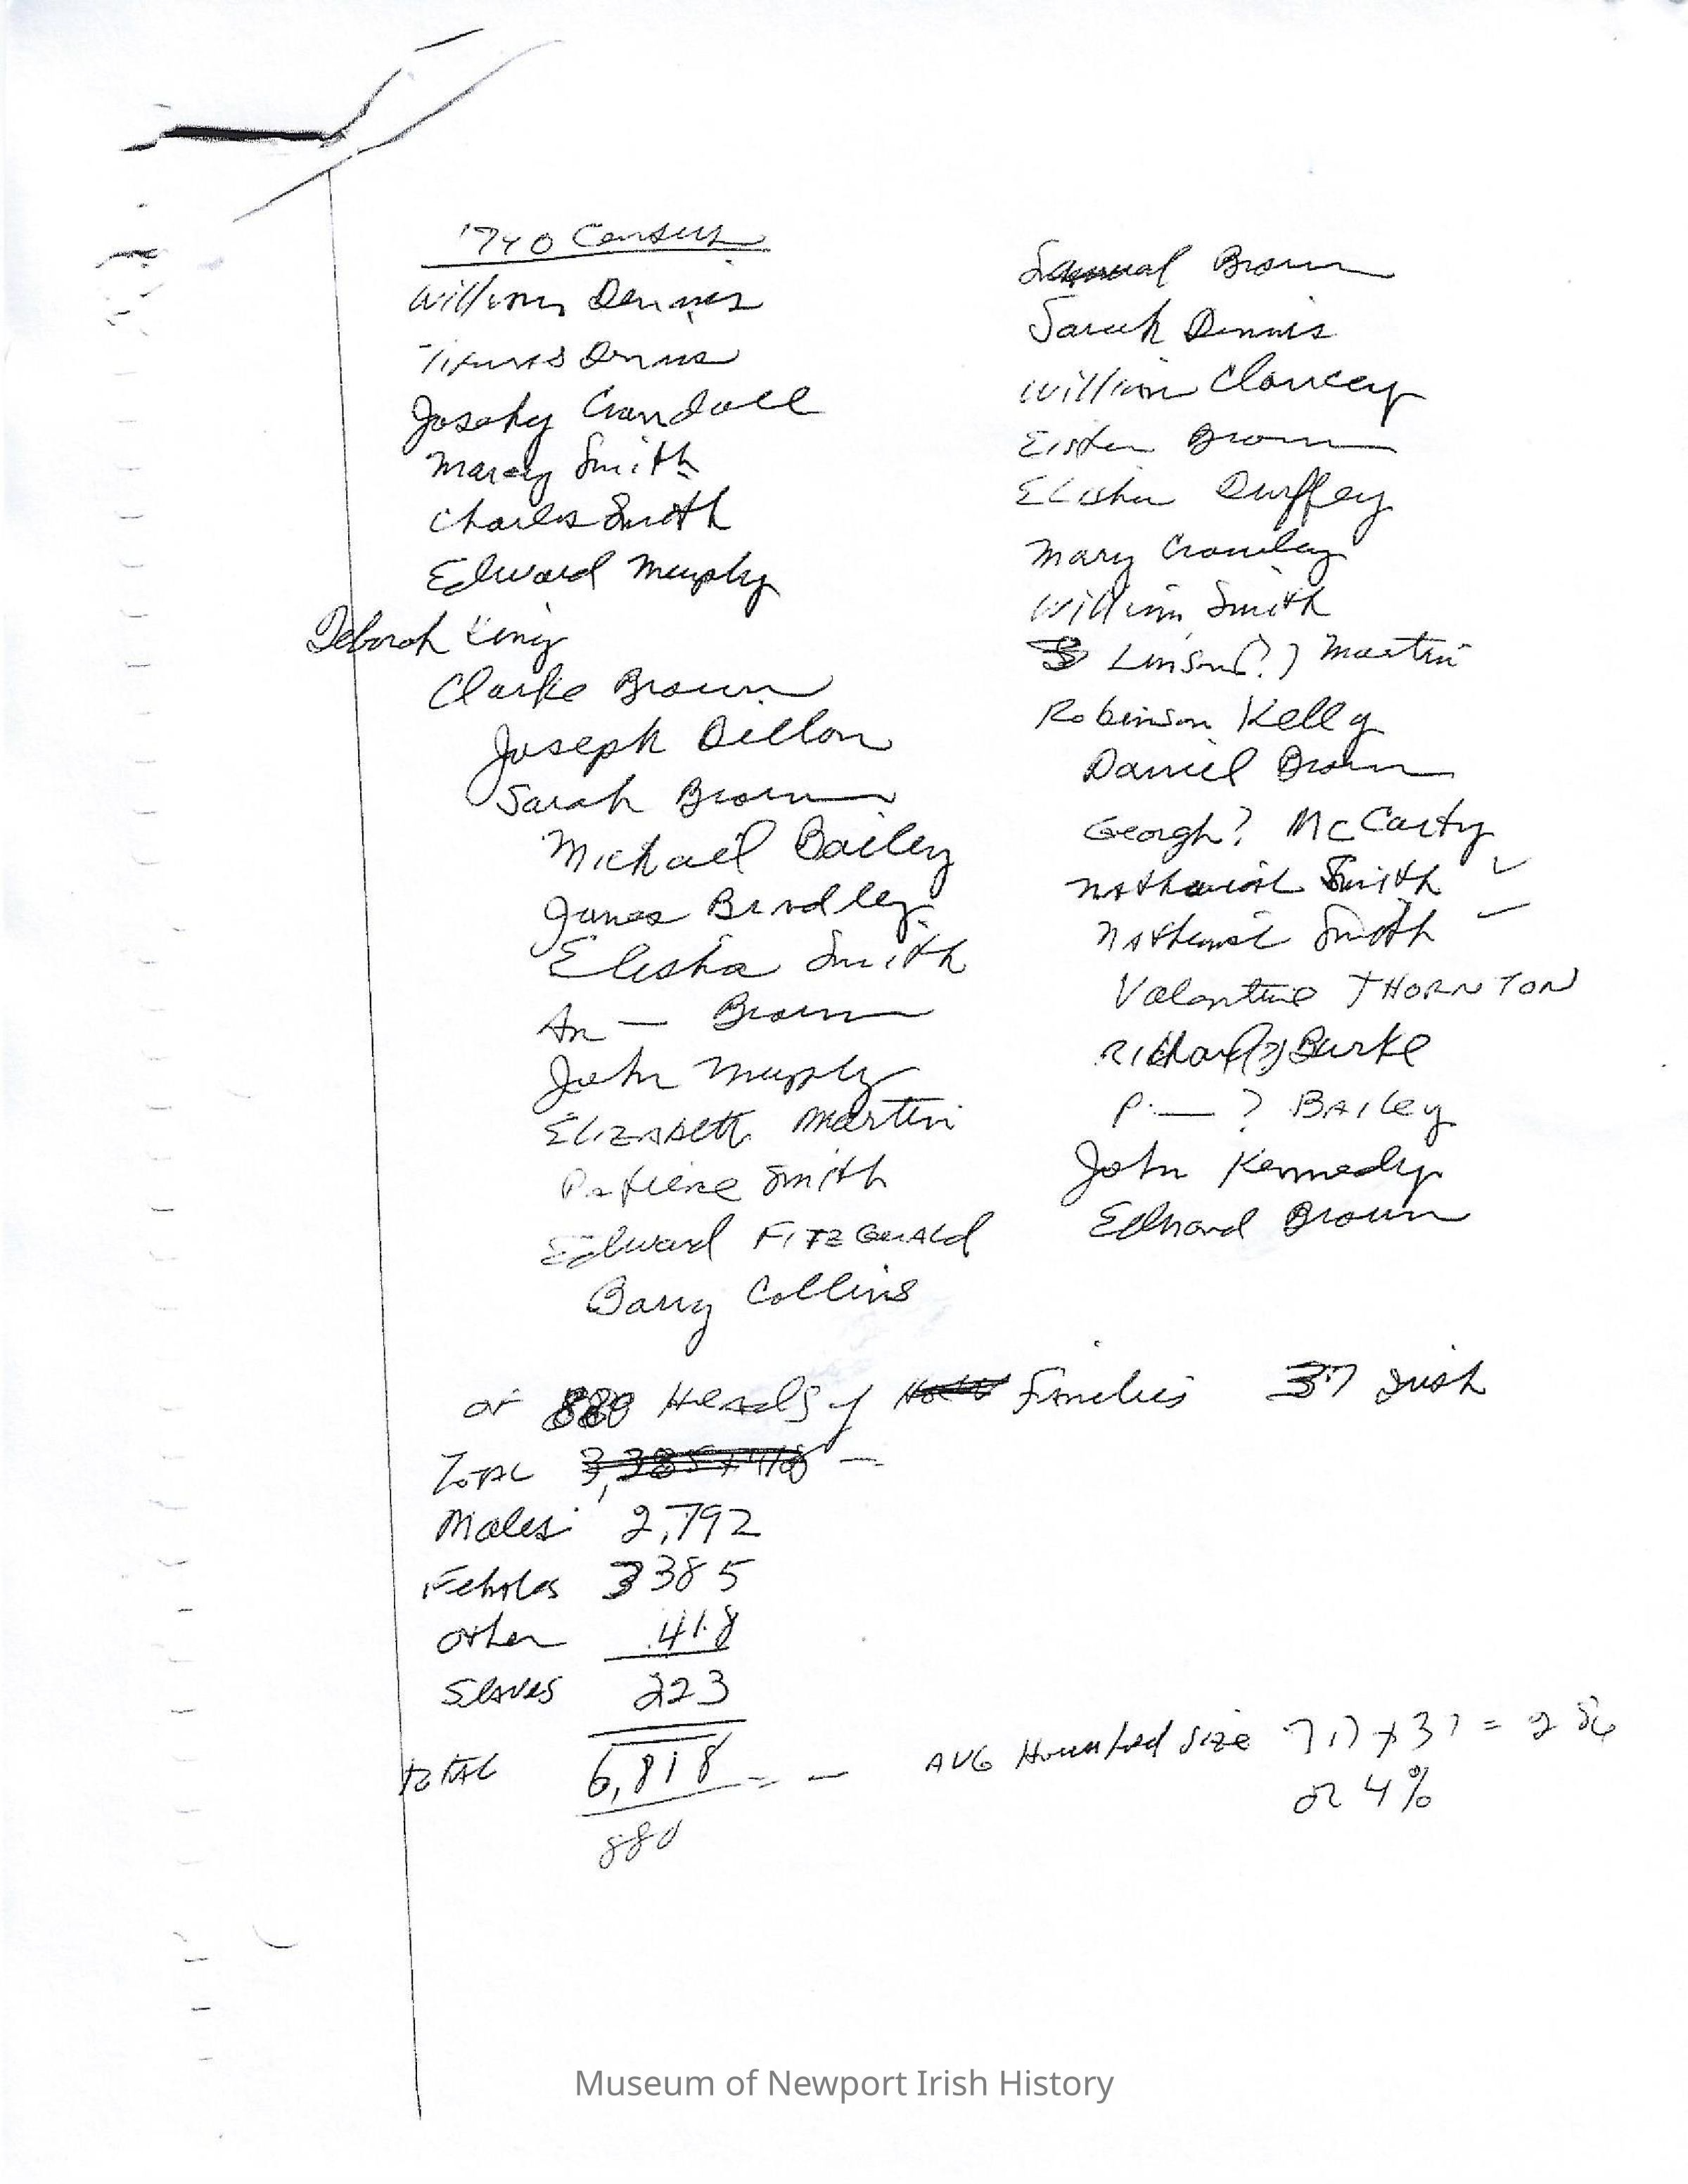 1790 Census
William Dennis
Dennis
Crandall
Marcy Smith
Charles Smith
Edward Murphy
Deborah King
Clarke Brown
Joseph Dillon
Sarah Brown
Michael Bailey
James Bradley
Elisha Smith
An — Brown
John Murphy
Elizabeth Martin
Patience Smith
Edward FitzGerald
Barry Collins
Samual Brown
Sarah Dennis
William Clancey
Brown
Elisha Durffey
Mary Crowley
William Smith
Linson(?) Martin
Robinson Kelly
Daniel Brown
Georgh? McCarty
Nathanial Smith ✓
Nathanial Smith —
Valantine THORNTON
Richard(?) Burke
P. — ? Bailey
John Kennedy
Edward Brown
of 880 Heads of Families 37 Irish
Total 3,385 + 418 —
Males 2,792
Females 3385
Other 418
Slaves 223
Total 6,818 = —
880
AVG Household size 7.7 x 37 = 286
or 4%
Museum of Newport Irish History